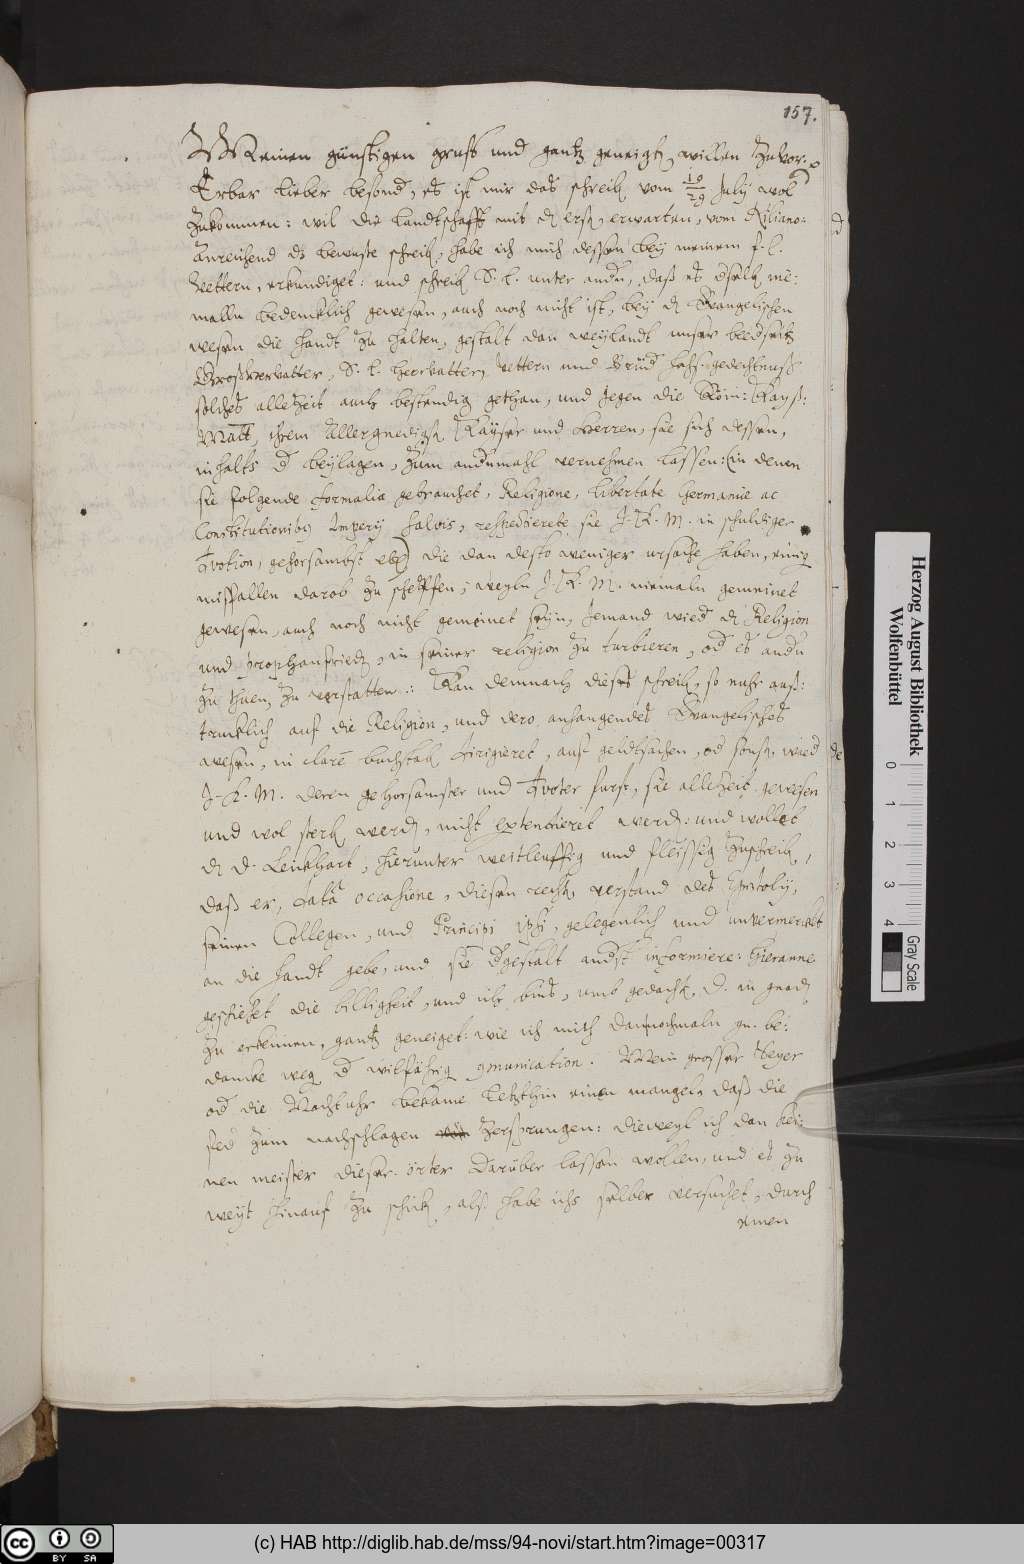 157.
Meinen günstigen gruß und gantz geneigtn willen zuvor:
Erbar lieber besonder, es ist mir das schreibn vom 19/29 July wol
Zukommen: wil die landtschafft mit der erstn erwarten, vom Kiliano:
Anreichend das bewuste schreibn, habe ich mich dessen bey meinem f. l.
Vettern, erkundiget: und schreibn S. L. unter andern, daß es derselbn nie:
malln bedencklich gewesen, auch noch nicht ist, bey dem Evangelischen
wesen die handt zu halten, gestalt dan weylandt unser beederseits
Großhervatter, S. L. Herrvatter, Vettern und Brüder hochs. gedechtnuß
solches alletzeit auch bestendig gethan, und Jegen die Röm: Kayß:
Maitt, ihrem Allergnedigstn Kayser und Herren, sie sich dessen,
inhalts der beylagen, zum andermahl vernehmen lassen: (in denen
sie folgende formalia gebrauchet, Religione, libertate Germaniæ ac
Constitutionibus Imperij salvis, respectierete sie J. K. M. in schuldiger
devotion, gehorsambst etc) die dan desto weniger ursache haben, einig
misfallen darob zu schepffen, weyln J. K. M. niemaln gemeinet
gewesen, auch noch nicht gemeinet seyn, Jemand wieder den Religion
und prophanfriedn, in seiner religion zu turbieren, oder es andern
zu thuen, zu verstatten: Kan demnach dieses schreibn, so nuhr auß:
trucklich auf die Religion, und dero anhangendes Evangelisches
wesen, in claren buchstabn dirigieret, auf geldtsachen, oder sonst, wieder
J. K. M. deren gehorsamster und devoter furst, sie alletzeit gewesen
und wol sterbn werdn, nicht extendieret werdn: und wollet
dem D. Leuckhart, hierunter weitleuffig und fleissig zuschreibn,
daß er, data occasione, diesen rechtn verstand des Epistolij,
seinen Collegen, und Principi ipsi, gelegenlich und unvermerckt
an die handt gebe, und sie dergestalt anderst informiere: Hieranne
geschiehet die billigheit, und ich bins, umb gedachtn D. in gnadn
zu erkennen, gantz geneiget: wie ich mich dan nochmaln gn. be:
dancke wegn der wilfährign communication. Mein grosser Zeyer
oder die Nachtuhr bekame letzthin einen mangel, daß die
feder zum nachschlagen zersprungen: dieweyl ich dan kei:
nen meister dieser örter darüber lassen wollen, und es zu
weyt hinauf zu schickn, als habe ichs selber versuchet, durch
einen
Herzog August Bibliothek
Wolfenbüttel
0 1 2 3 4
Gray Scale
cc BY SA
(c) HAB http://diglib.hab.de/mss/94-novi/start.htm?image=00317